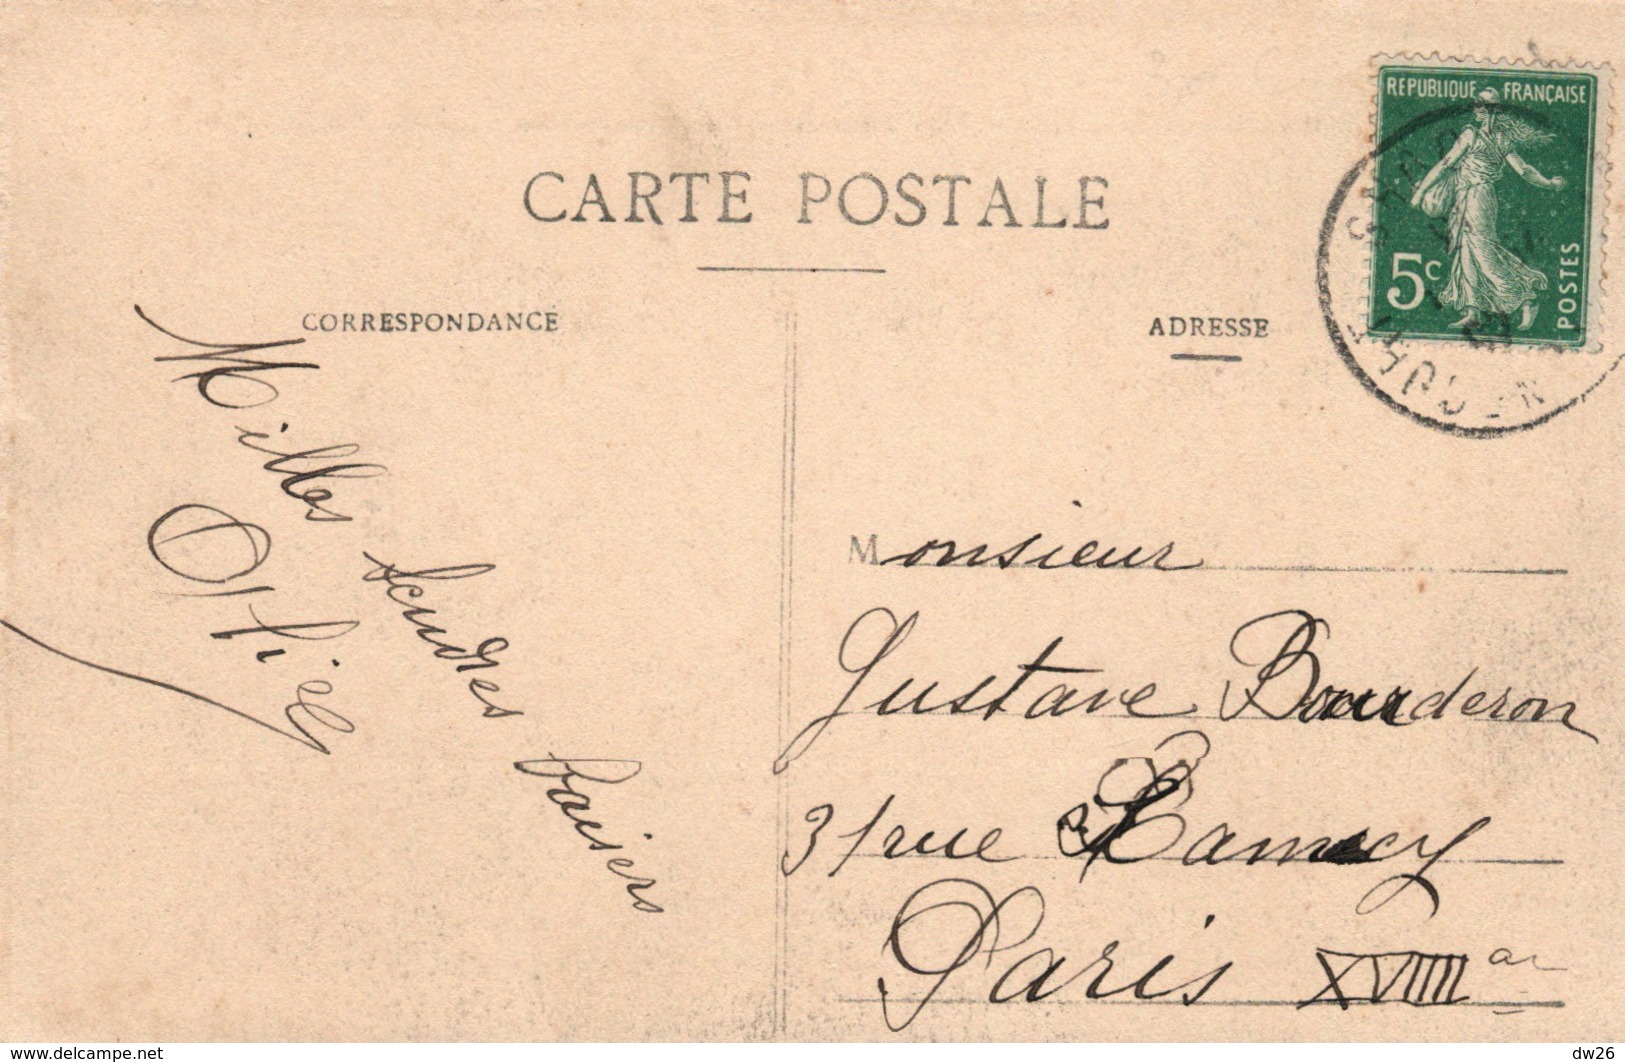 CARTE POSTALE
CORRESPONDANCE
ADRESSE
RÉPUBLIQUE FRANÇAISE
5c
POSTES
Milles tendres baisers
Monsieur
Gustave Bourderon
31 rue Ramey
Paris XVIIII ar
Website: www.delcampe.net
dw26